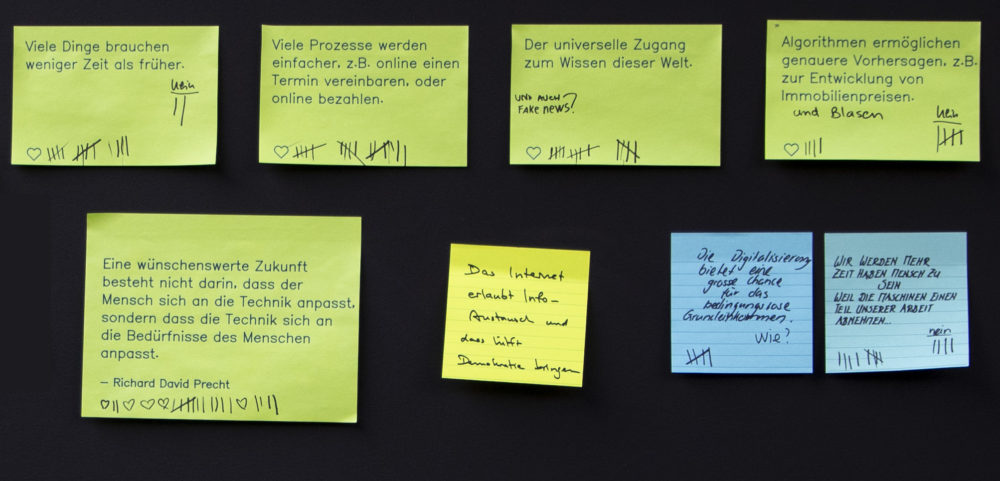 Viele Dinge brauchen
weniger Zeit als früher.
nein
Viele Prozesse werden
einfacher, z.B. online einen
Termin vereinbaren, oder
online bezahlen.
Der universelle Zugang
zum Wissen dieser Welt.
UND AUCH
FAKE NEWS?
Algorithmen ermöglichen
genauere Vorhersagen, z.B.
zur Entwicklung von
Immobilienpreisen.
und Blasen
nein
Eine wünschenswerte Zukunft
besteht nicht darin, dass der
Mensch sich an die Technik anpasst,
sondern dass die Technik sich an
die Bedürfnisse des Menschen
anpasst.
– Richard David Precht
Das Internet
erlaubt Info-
Austausch und
dass hilft
Demokratie bringen
Die Digitalisierung
bietet eine
grosse Chance
für das
bedingungslose
Grundeinkommen.
Wie?
WIR WERDEN MEHR
ZEIT HABEN MENSCH ZU
SEIN
WEIL DIE MASCHINEN EINEN
TEIL UNSERER ARBEIT
ABNEHMEN...
nein